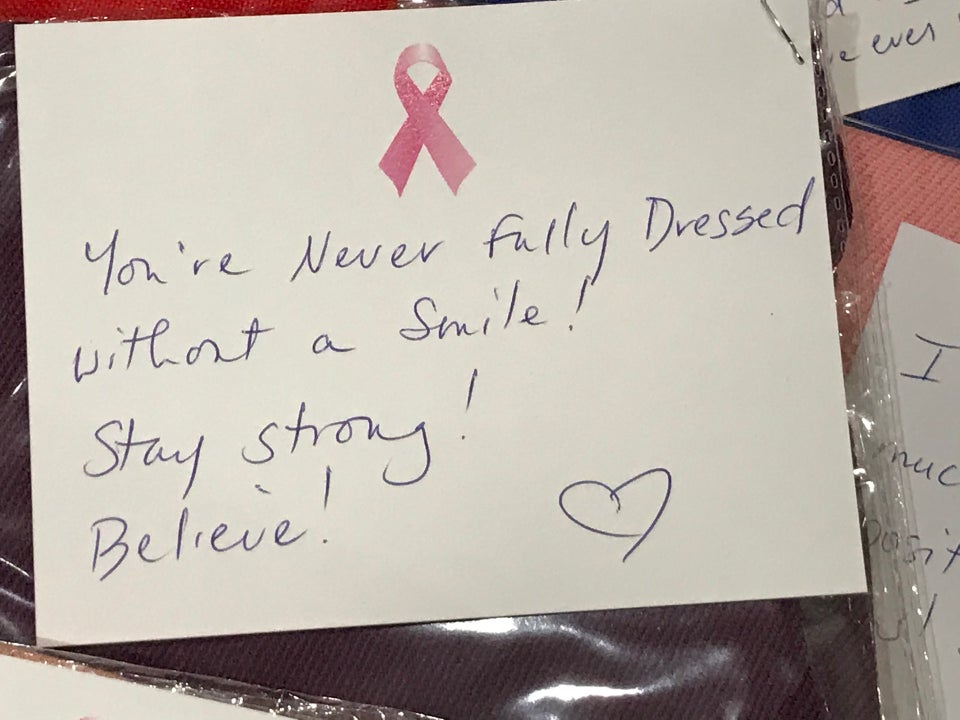 You're Never Fully Dressed
without a Smile!
Stay strong!
Believe!
ever
I